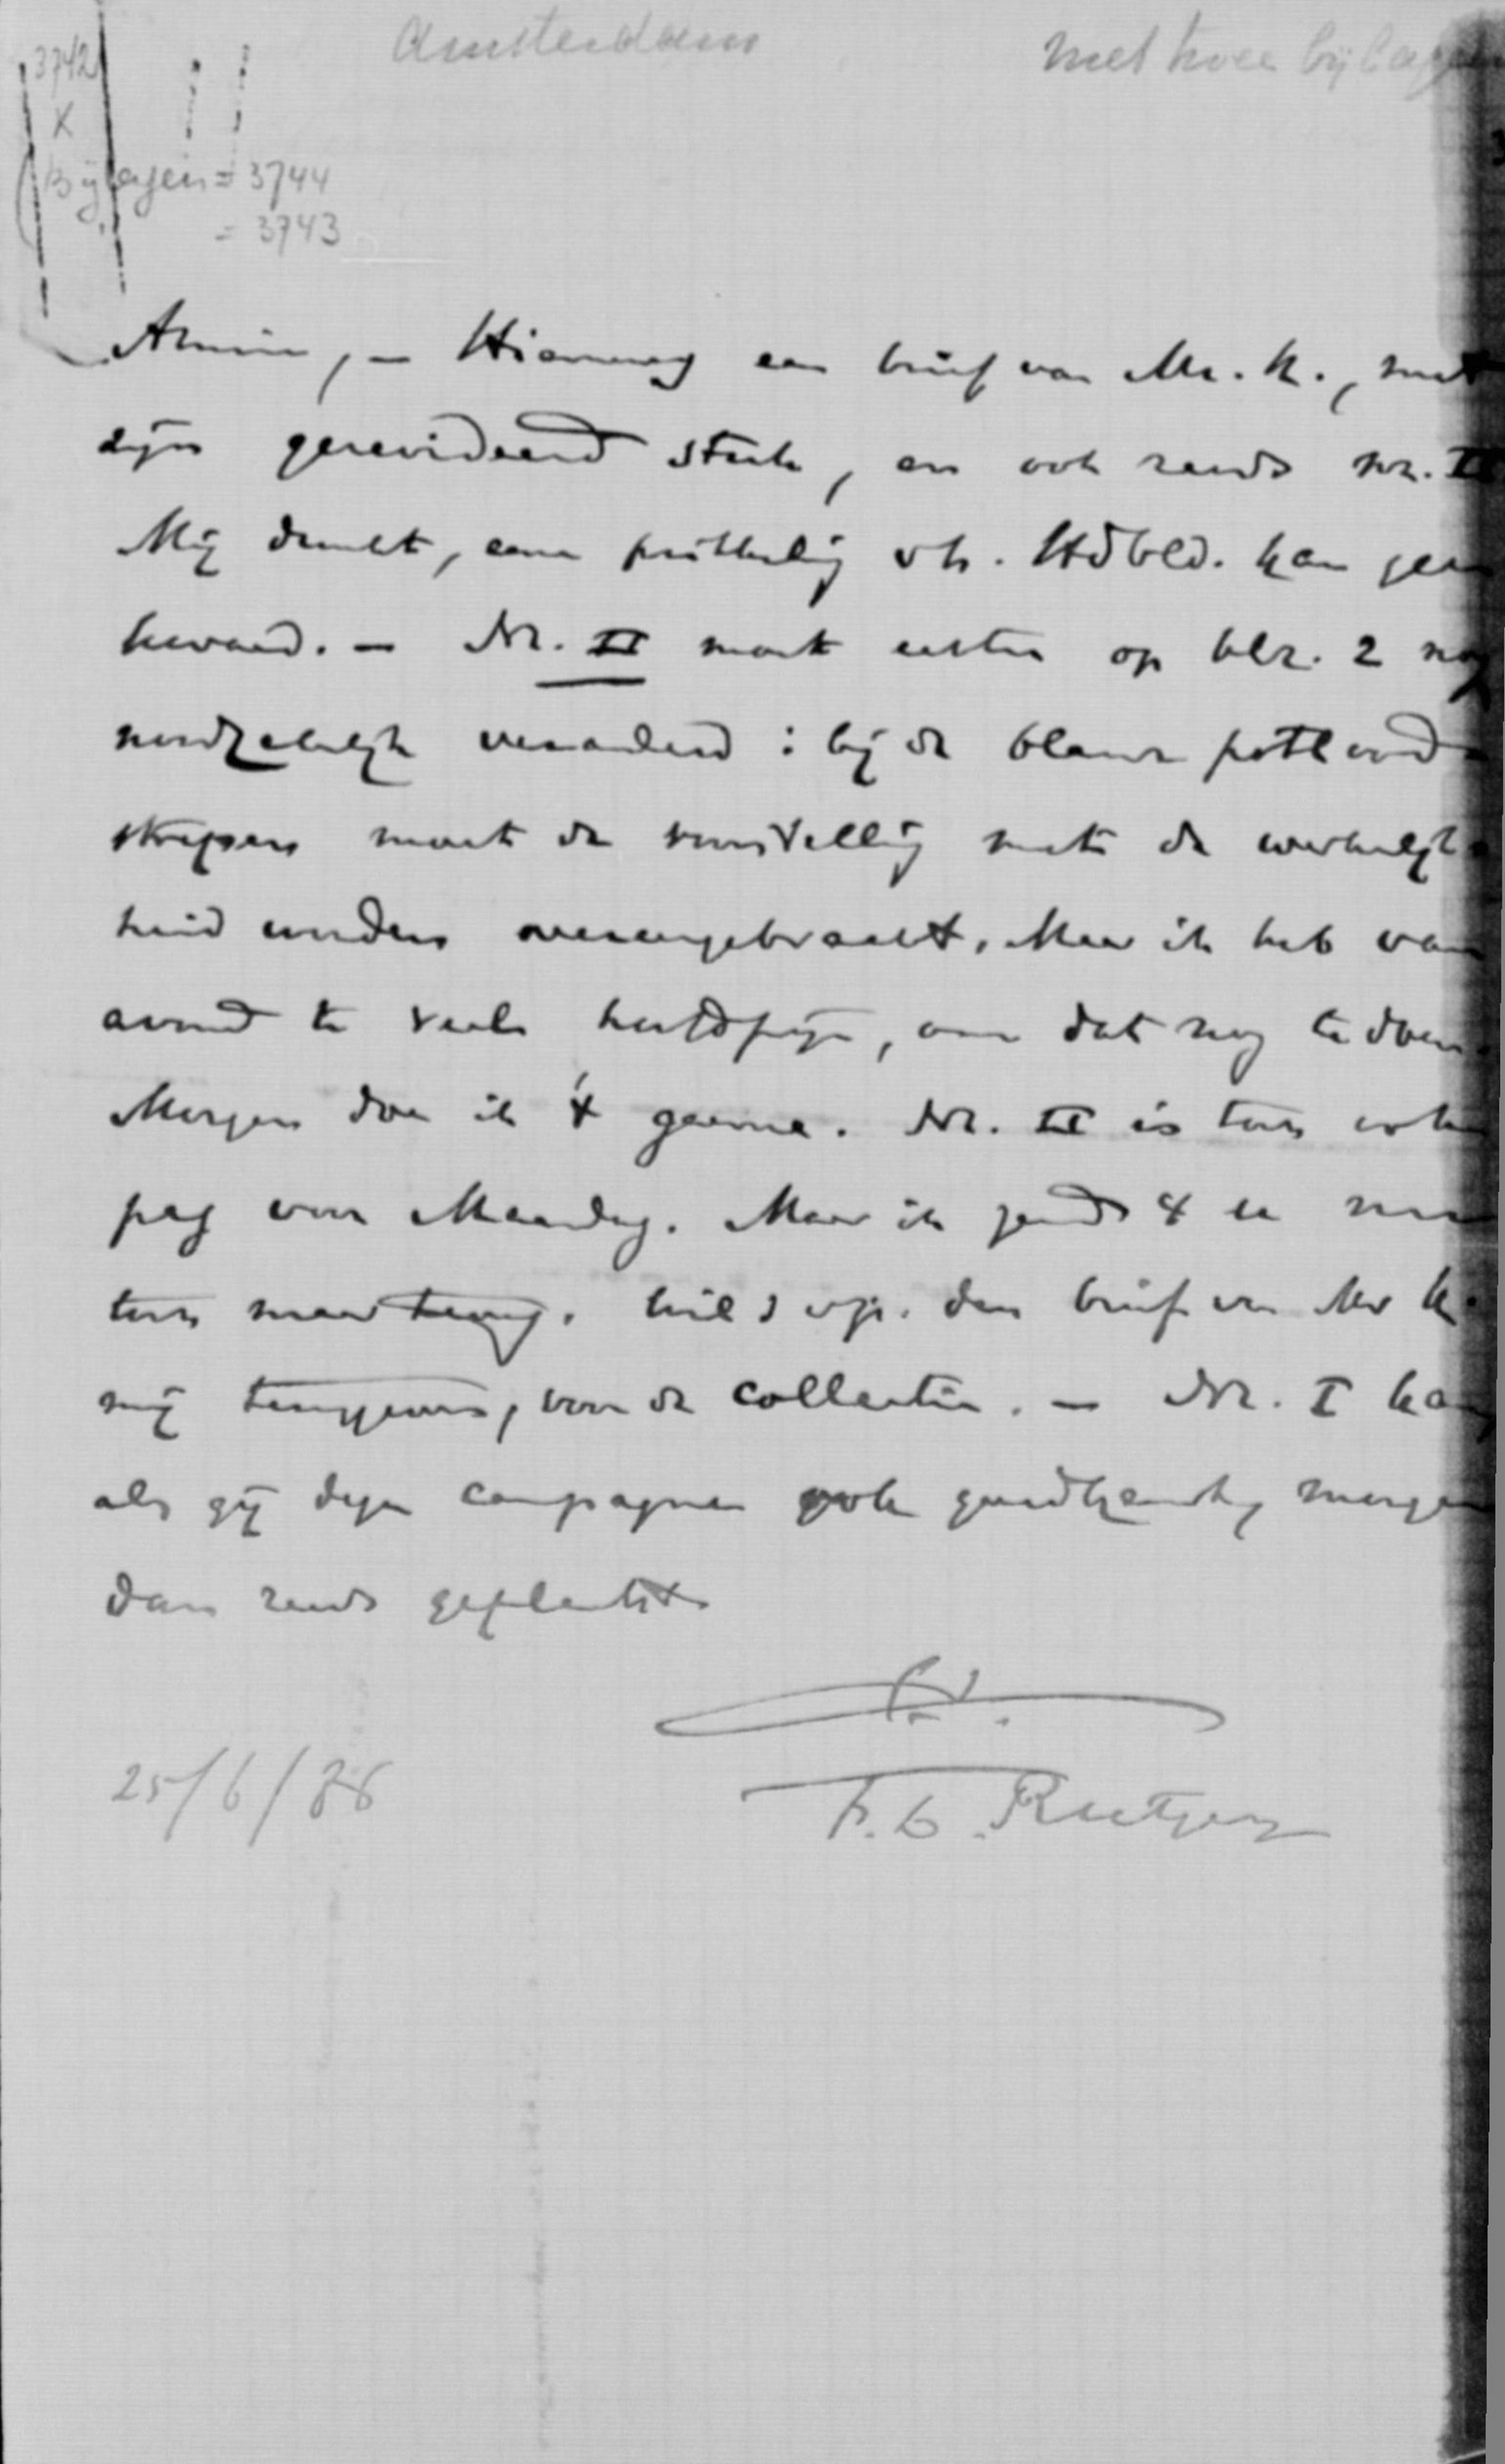 3742
Amsterdam
met twee bijlagen
X
(Bijlagen = 3744
= 3743
Amice, – Hiernevens een brief van Mr. K., met
zijn gerevideerd stuk, en ook reeds nr. II
Mij dunkt, eene prikkeling v.h. Hdbld. kan geen
kwaad. – Nr. II moet echter op blz. 2 nog
noodzakelijk veranderd : bij de blauwe potlood
strepen moet de voorstelling met de werkelijk
heid worden overeengebracht. Maar ik heb van
avond te veel hoofdpijn, om dat nog te doen.
Morgen doe ik 't gaarne. Nr. II is toch ook
pas voor Maandag. Maar ik zend 't u nu
toch maar. Wil s.v.p. den brief van Mr K.
mij teruggeven, voor de collectie. – Nr. I kan
als gij deze campagne ook goedkeurt, morgen
dan reeds geplaatst
R.
25/6/86
F. L. Rutgers